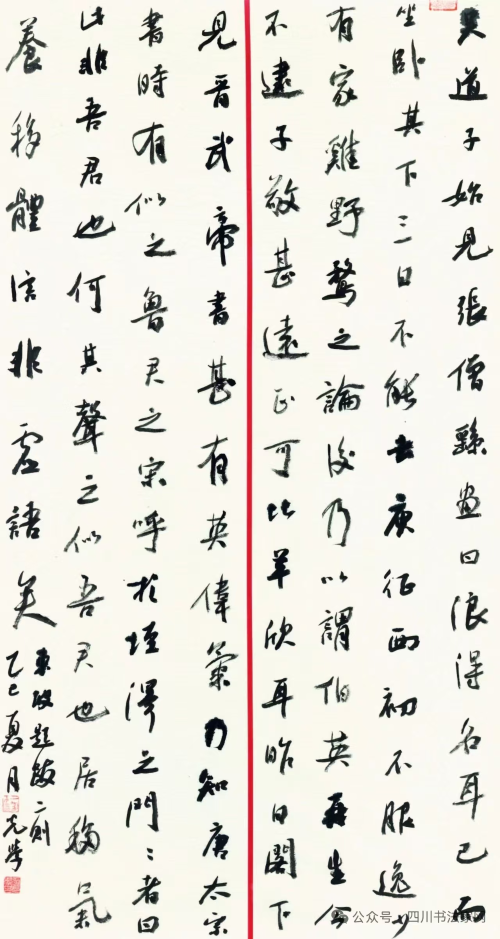 吴道子始見張僧繇畫曰浪得名耳已而
坐卧其下三日不能去庾征西初不服逸少
有家雞野鶩之論後乃以謂伯英再生今
不逮子敬甚遠正可比羊欣耳昨日閣下
見晋武帝書甚有英偉氣乃知唐太宗
書時有似之魯君之宋呼於垤澤之門〻者曰
此非吾君也何其聲之似吾君也居移氣
養移體信非虚語矣
東坡題跋二則
乙巳夏月
公众号 · 四川书法家网